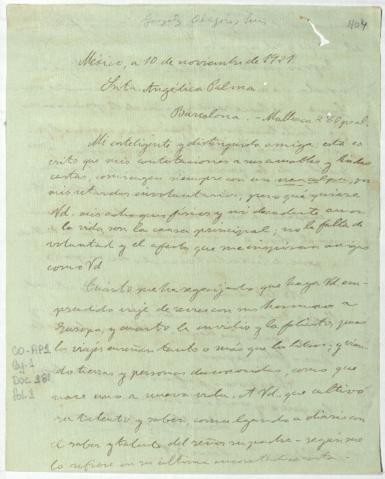 González Obregón, Luis
1404
México, a 10 de noviembre de 1921.
Srita. Angélica Palma:
Barcelona. - Mallorca 280 pral.
Mi inteligente y distinguida amiga: está es-
crito que mis contestaciones a sus amables y bellas
cartas, comiencen siempre con un por
mis retardos involuntarios; pero qué quiere
Vd., mis achaques físicos y mi decadente amor
a la vida, son la causa principal; no la falta de
voluntad y el afecto que me inspiran amigas
como Vd.
Cuanto me ha regocijado que haya Vd. em-
prendido viaje de recreo con su hermana a
Europa, y cuanto la envidio y la felicito, pues
los viajes enseñan tanto o más que los libros, y vien-
do tierras y personas desconocidas, como que
nace uno a nueva vida. A Vd. que cultivó
su talento y saber, comulgando a diario con
el saber y talento del señor su padre - según me
lo refiere en su última
CO-AP1
Cj. 1
Doc. 181
Fol. 1